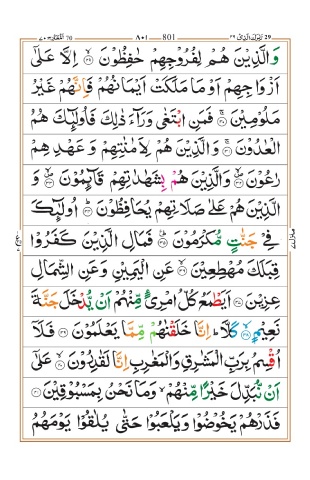 تبٰرك الذی ٢٩ 801 ٨٠١ المعارج ٧٠
وَالَّذِيۡنَ هُمۡ لِفُرُوۡجِهِمۡ حٰفِظُوۡنَۙ‏ ﴿۲۹﴾ اِلَّا عَلٰٓى
اَزۡوَاجِهِمۡ اَوۡ مَا مَلَـكَتۡ اَيۡمَانُهُمۡ فَاِنَّهُمۡ غَيۡرُ
مَلُوۡمِيۡنَ‌ۚ‏ ﴿۳۰﴾ فَمَنِ ابۡتَغٰى وَرَآءَ ذٰلِكَ فَاُولٰٓٮِٕكَ هُمُ
الۡعٰدُوۡنَ‌ۚ‏ ﴿۳۱﴾ وَالَّذِيۡنَ هُمۡ لِاَمٰنٰتِهِمۡ وَعَهۡدِهِمۡ
رٰعُوۡنَ ﴿۳۲﴾ وَالَّذِيۡنَ هُمۡ بِشَهٰدٰتِهِمۡ قَآٮِٕمُوۡنَ ﴿۳۳﴾ وَ
الَّذِيۡنَ هُمۡ عَلٰى صَلَاتِهِمۡ يُحَافِظُوۡنَؕ‏ ﴿۳۴﴾ اُولٰٓٮِٕكَ
فِىۡ جَنّٰتٍ مُّكۡرَمُوۡنَؕ‏ ﴿۳۵﴾ فَمَالِ الَّذِيۡنَ كَفَرُوۡا
قِبَلَكَ مُهۡطِعِيۡنَۙ‏ ﴿۳۶﴾ عَنِ الۡيَمِيۡنِ وَعَنِ الشِّمَالِ
عِزِيۡنَ‏ ﴿۳۷﴾ اَيَطۡمَعُ كُلُّ امۡرِىءٍ مِّنۡهُمۡ اَنۡ يُّدۡخَلَ جَنَّةَ
نَعِيۡمٍۙ‏ ﴿۳۸﴾ كَلَّا ؕ اِنَّا خَلَقۡنٰهُمۡ مِّمَّا يَعۡلَمُوۡنَ‏ ﴿۳۹﴾ فَلَاۤ
اُقۡسِمُ بِرَبِّ الۡمَشٰرِقِ وَالۡمَغٰرِبِ اِنَّا لَقٰدِرُوۡنَۙ‏ ﴿۴۰﴾ عَلٰٓى
اَنۡ نُّبَدِّلَ خَيۡرًا مِّنۡهُمۡۙ وَمَا نَحۡنُ بِمَسۡبُوۡقِيۡنَ‏ ﴿۴۱﴾
فَذَرۡهُمۡ يَخُوۡضُوۡا وَيَلۡعَبُوۡا حَتّٰى يُلٰقُوۡا يَوۡمَهُمُ